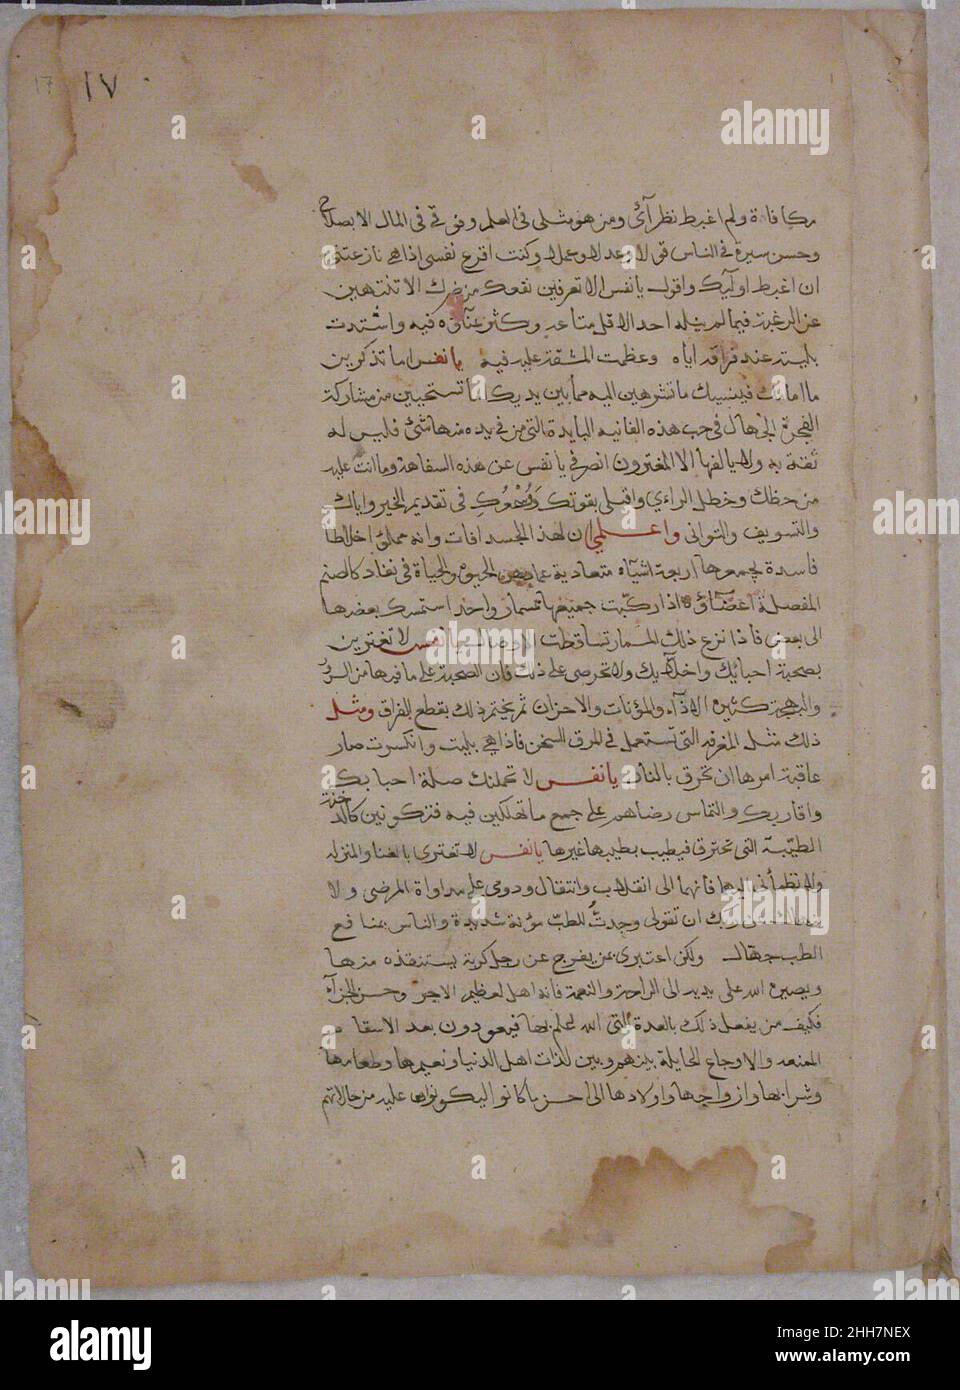 17 ١٧
مكافاة ولم اغبط نظرآئ ومن هو مثلى فى العلم وفوقى فى المال الا بصلاح
وحسن سيرة فى الناس قولا وعملا وكنت اقرع نفسى اذا هى نازعتنى
ان اغبط اوليك واقول يا نفس الا تعرفين نفعك من ضرك الا تنتهين
عن الرغبة فيما لم ينله احد الا قل متاعه وكثر عنآؤه فيه واشتدت
بليته عند فراقه اياه وعظمت المشقة عليه فيه يا نفس اما تذكرين
ما امامك فينسيك ما تشرهين اليه مما بين يديك الا تستحيين من مشاركة
الفجرة الجهال فى حب هذه الفانيه البايدة التى من فى يده منها شئ فليس له
ثقة به ولا يالفها الا المغترون انصرفى يا نفس عن هذه السفاهة وما انت عليه
من حظك وخطل الراى واقبلى بقوتك فى تقديم الخير واياك
والتسويف والتوانى واعلمى ان لهذا الجسد افات وانه مملوء اخلاطا
فاسدة يجمعها اربعة اشياء متعادية والحياة فى نفاد كالصنم
المفصلة اعضاؤه اذا ركبت جميعها مسمار واحد استمسك بعضها
الى بعض فاذا نزع ذلك المسمار تساقطت الاوصال يا نفس لا تغترين
بصحبة احبائك واخلآيك ولا تحرصى على ذلك فان الصحبة على ما فيها من السرور
والبهجة كثيرة الاذآء والمؤنات والاحزان ثم يختم ذلك بقطع الفراق ومثل
ذلك مثل المغرفة التى تستعمل فى المرق السخن فاذا هى بليت وانكسرت صار
عاقبة امرها ان تحرق بالنار يا نفس لا تحملنك صلة احبابك
واقاربك والتماس رضاهم على جمع ما تهلكين فيه فتكونين كالدخنة
الطيبة التى تحترق فيطيب بطيبها غيرها يا نفس لا تغترى بالغنا والمنزله
ولا تطمأنى اليها فانهما الى انقلاب وانتقال ودومى على مداواة المرضى ولا
ان تقولى وجدتُ للطب مؤنة شديدة والناس بمنافع
الطب جهال ولكن اعتبرى بمن يفرج عن رجل كربة يستنقذه منها
ويصيره الله على يديه الى الراحة والنعمة فانه اهل لعظيم الاجر وحسن الجزآء
فكيف من يفعل ذلك بالعدة التى الله يعلم بها فيعودون بعد الاسقام
والاوجاع الحايلة بينهم وبين لذات اهل الدنيا ونعيمها وطعامها
وشرابها وازواجها واولادها الى احسن ما كانوا يكونوا عليه من حالاتهم
alamy
a
alamy
Image ID: 2HH7NEX
www.alamy.com